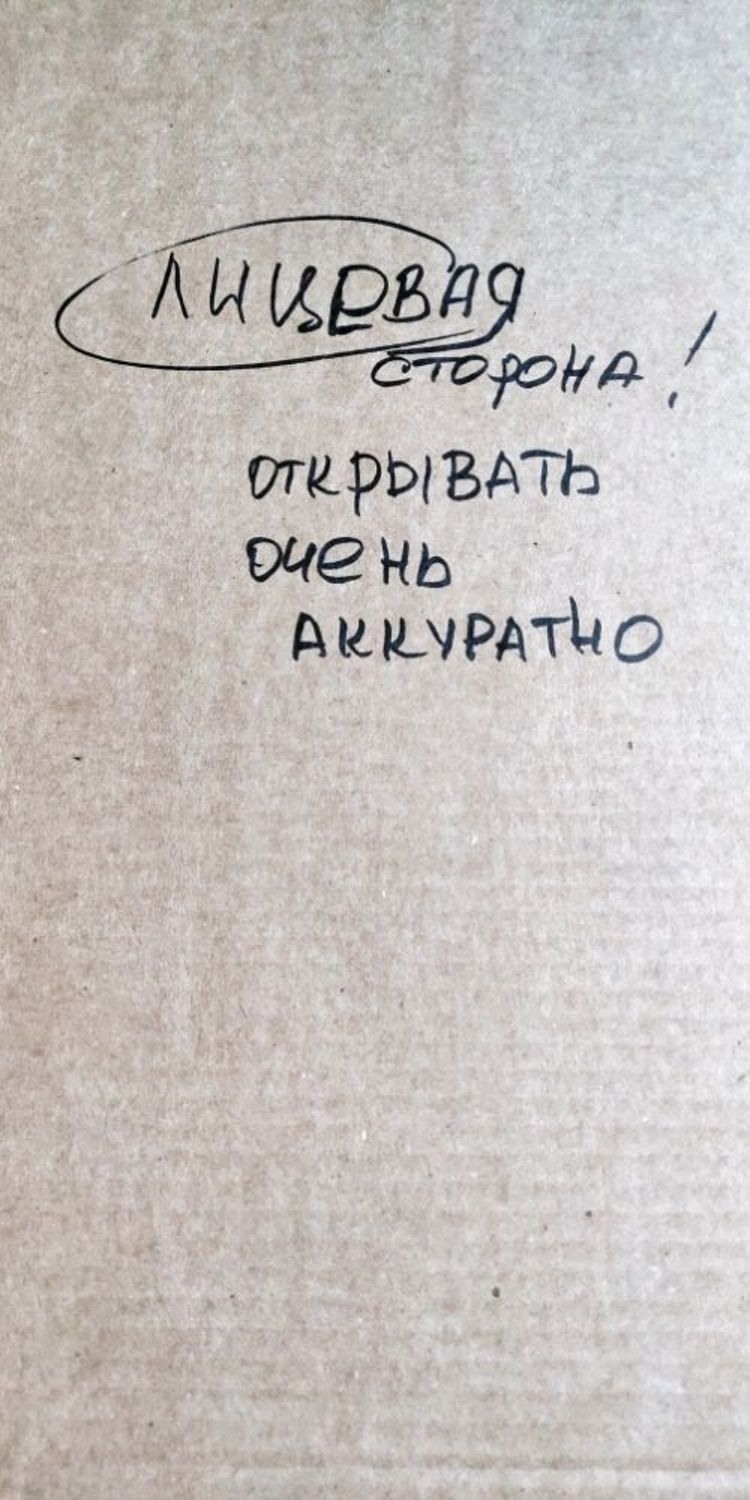 ЛИЦЕВАЯ
СТОРОНА!
ОТКРЫВАТЬ
ОЧЕНЬ
АККУРАТНО